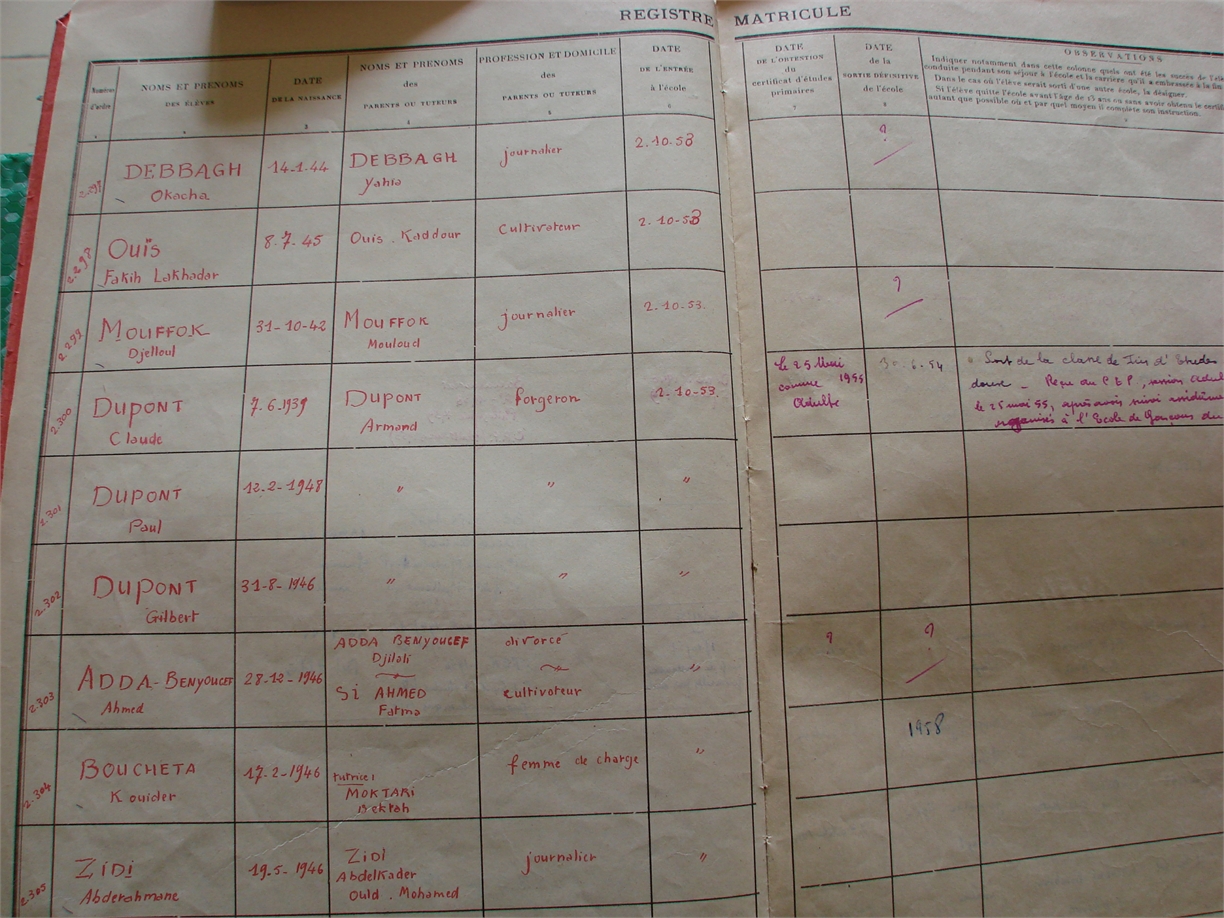 REGISTRE MATRICULE
Numéros d'ordre
NOMS ET PRENOMS
DES ÉLÈVES
DATE
DE LA NAISSANCE
NOMS ET PRENOMS
des
PARENTS OU TUTEURS
PROFESSION ET DOMICILE
des
PARENTS OU TUTEURS
DATE
DE L'ENTRÉE
à l'école
DATE
DE L'OBTENTION
du
certificat d'études
primaires
DATE
de la
SORTIE DÉFINITIVE
de l'école
OBSERVATIONS
Indiquer notamment dans cette colonne quels ont été les succès de l'élè
conduite pendant son séjour à l'école et la carrière qu'il a embrassée à la fin
Dans le cas où l'élève serait sorti d'une autre école, la désigner.
Si l'élève quitte l'école avant l'âge de 13 ans ou sans avoir obtenu le certifi
autant que possible où et par quel moyen il complète son instruction.
DEBBAGH
Okacha
14-1-44
DEBBAGH
Yahia
journalier
2.10.53
?
2.298
Ouïs
Fakih Lakhadar
8.7.45
Ouis. Kaddour
Cultivateur
2.10-53
2.299
MOUFFOK
Djelloul
31-10-42
MOUFFOK
Mouloud
journalier
2-10-53.
?
2.300
DUPONT
Claude
7.6.1939
DUPONT
Armand
forgeron
2-10-53.
Le 25 Mai
comme 1955
Adulte
30.6.54
Sort de la classe de
Reçu au C E P, session Adul
le 25 mai 55, après avoir suivi
organisés à l'Ecole de Garçons du
2.301
DUPONT
Paul
12-2-1948
"
"
"
2.302
DUPONT
Gilbert
31-8-1946
"
"
"
2.303
ADDA-BENYOUCEF
Ahmed
28-12-1946
ADDA BENYOUCEF
Djilali
Si AHMED
Fatma
divorcé
cultivateur
"
?
?
2.304
BOUCHETA
Kouider
17-2-1946
tutrice:
MOKTARI
Bekhtah
femme de charge
"
1958
2.305
ZIDI
Abderahmane
19.5-1946
ZIDI
Abdelkader
Ould. Mohamed
journalier
"